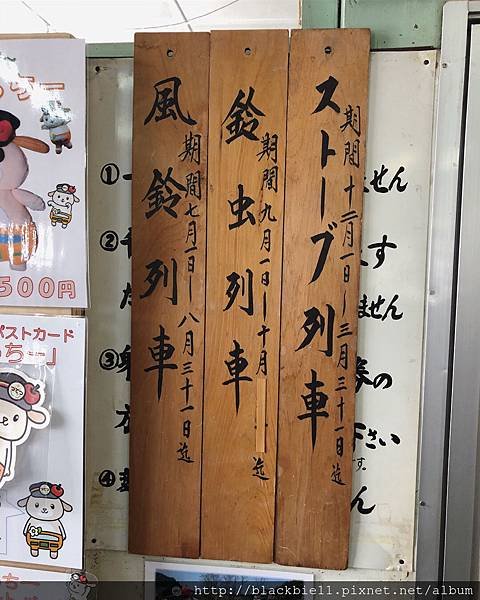 ストーブ列車
期間 十二月一日ー三月三十一日迄
鈴虫列車
期間九月一日ー十月 迄
風鈴列車
期間七月一日ー八月三十一日迄
ちー
500円
ポストカード
っちー」
①
②
③
④
せん
す
ません
の
下さい
す。
ん
http://blackbie11.pixnet.net/album